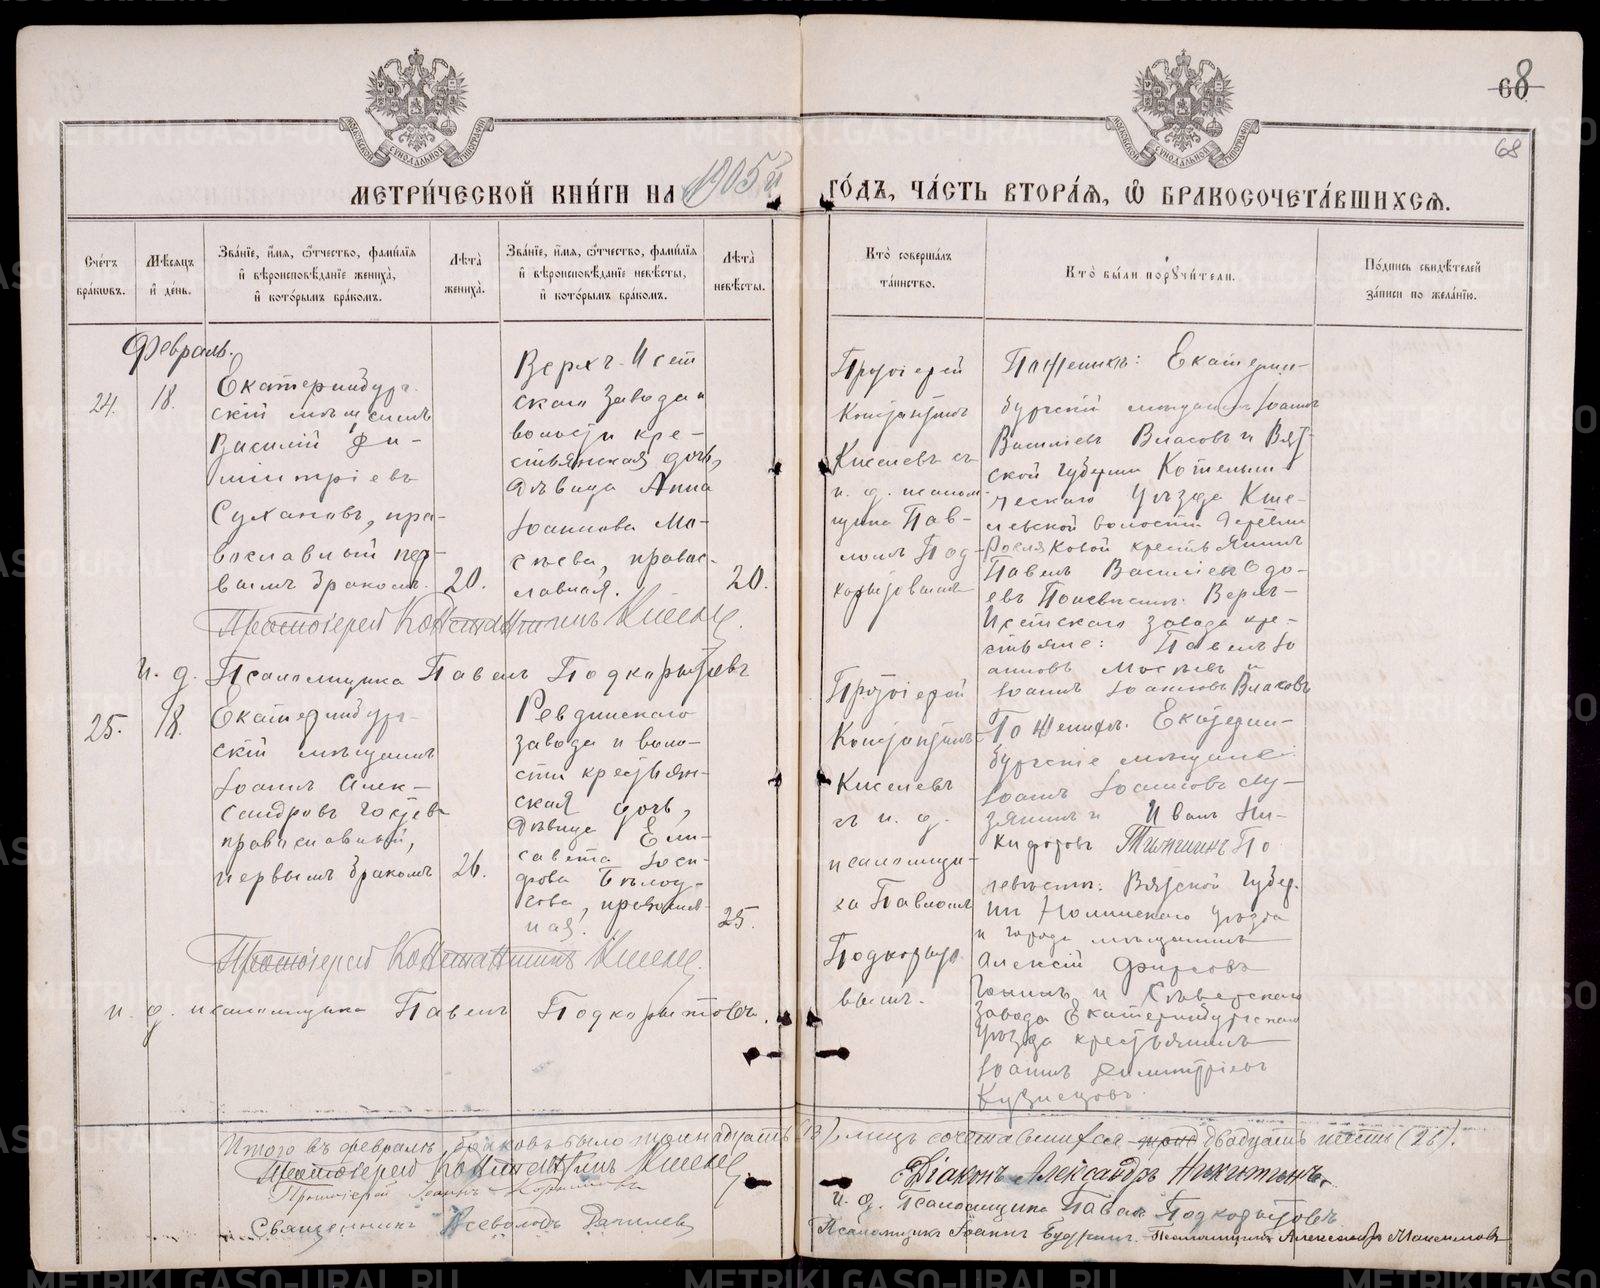 68
68
МЕТРИ́ЧЕСКОЙ КНИ́ГИ НА 1905й ГО́ДЪ, ЧА́СТЬ ВТОРА́Я, Ѡ БРАКОСОЧЕТА́ВШИХСЯ.
Сче́тъ бра́кѡвъ.
Мѣ́сяцъ и҆ де́нь.
Зва́нїе, и҆́мя, ѻ҆́тчество, фами́лїя
и҆ вѣроисповѣ́данїе жениха̀,
и҆ кото́рымъ бра́комъ.
Лѣта̀ жениха̀.
Зва́нїе, и҆́мя, ѻ҆́тчество, фами́лїя
и҆ вѣроисповѣ́данїе невѣ́сты,
и҆ кото́рымъ бра́комъ.
Лѣта̀ невѣ́сты.
Кто̀ соверша́лъ
та́инство.
Кто̀ бы́ли порꙋчи́тели.
По́дпись свидѣ́телей
за́писи по жела́нїю.
Февраль.
24.
18.
Екатеринбург-
скій мѣщанинъ
Василій Ди-
митріевъ
Сухановъ, пра-
вославный пер-
вымъ бракомъ.
20.
Верхъ-Исет
скаго завода и
волости кре-
стьянская дочь,
дѣвица Анна
Іоаннова Мо-
сѣева, правос-
лавная.
20.
Протоіерей
Константинъ
Киселевъ съ
и. д. псалом
щика Пав-
ломъ Под-
корытовымъ
По женихѣ: Екатерин-
бургскій мѣщанинъ Іоаннъ
Васильевъ Власовъ и Вят-
ской губерніи Котельни
ческаго уѣзда
волости деревни
крестьянинъ
Павелъ Василіевъ Одо-
евъ По невѣстѣ: Верхъ-
Исетскаго завода кре-
стьяне: Павелъ Іо
анновъ Мосѣевъ и
Іоаннъ Іоанновъ Власовъ
Протоіерей Константинъ Киселевъ.
и. д. Псаломщика Павелъ Подкорытовъ
25.
18.
Екатеринбург-
скій мѣщанинъ
Іоаннъ Алек-
сандровъ
православный,
первымъ бракомъ
26.
Ревдинскаго
завода и воло-
сти крестьян-
ская дочь,
дѣвица Ели-
савета Іоси-
фова Бѣлоу-
сова, православ-
ная.
25.
Протоіерей
Константинъ
Киселевъ
съ и. д.
псаломщи-
ка Павломъ
Подкоры­то­
вымъ.
По женихѣ: Екатерин-
бургскіе мѣщане
Іоаннъ Іоанновъ Му-
зянинъ и Иванъ Ни-
кифоровъ По
невѣстѣ: Вятской губер-
ніи Нолинскаго уѣзда
и города мѣщанинъ
Алексій Фирсовъ
и
завода Екатеринбургскаго
уѣзда крестьянинъ
Іоаннъ Димитріевъ
Кузнецовъ.
Протоіерей Константинъ Киселевъ.
и. д. псаломщика Павелъ Подкорытовъ.
Итого въ февралѣ браковъ было тринадцать (13), лицъ сочетавшихся двадцать шесть (26).
Протоіерей Константинъ Киселевъ.
Діаконъ Александръ Никитинъ.
Протоіерей Іоаннъ
и. д. Псаломщика Павелъ Подкорытовъ
Священникъ Всеволодъ Даниловъ
Псаломщикъ Іоаннъ Будринъ. Псаломщикъ Александръ Максимовъ